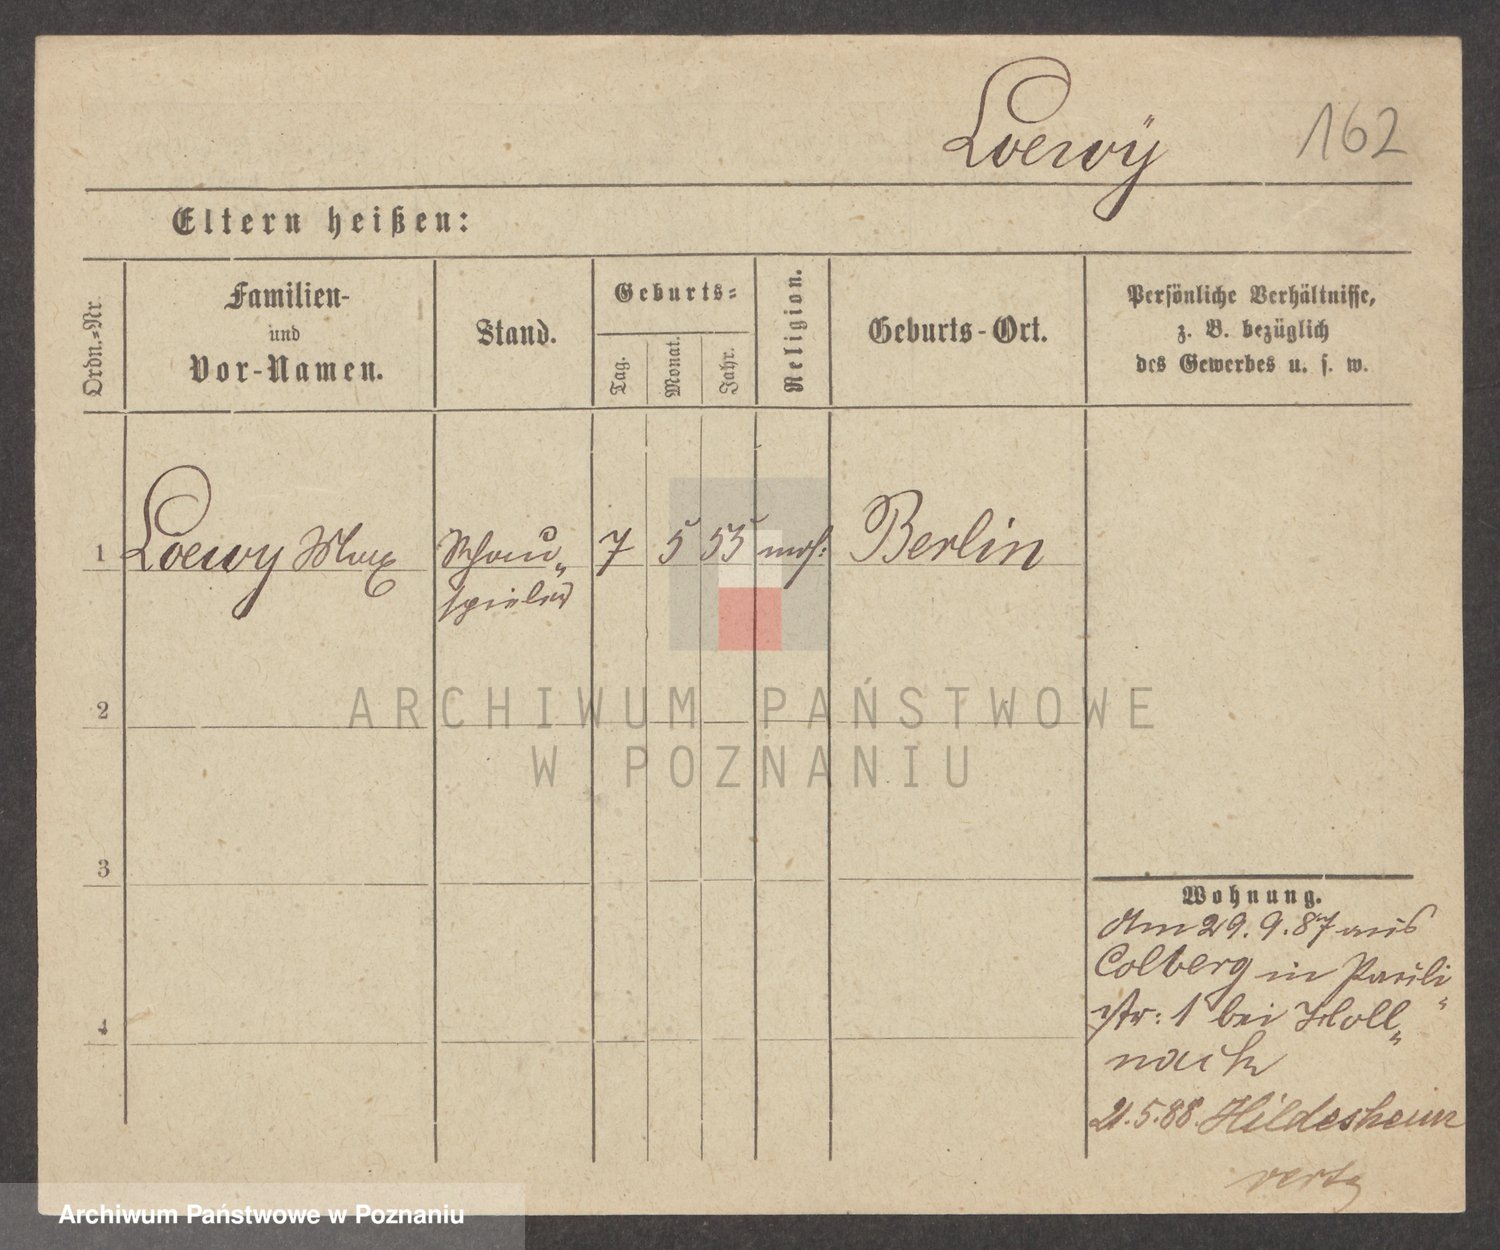 Loewÿ 162
Eltern heißen:
Ordn.-Nr.
Familien-
und
Vor-Namen.
Stand.
Geburts-
Tag.
Monat.
Jahr.
Religion.
Geburts-Ort.
Persönliche Verhältnisse,
z. B. bezüglich
des Gewerbes u. s. w.
1 Loewy Max Schau„ 7 5 55 mos: Berlin
spieler
2
ARCHIWUM PAŃSTWOWE
W POZNANIU
3
Wohnung.
Am 29.9.87 aus
Colberg in Pauli„
str: 1 bei Holl„
nack
4
21.5.88. Hildesheim
Archiwum Państwowe w Poznaniu